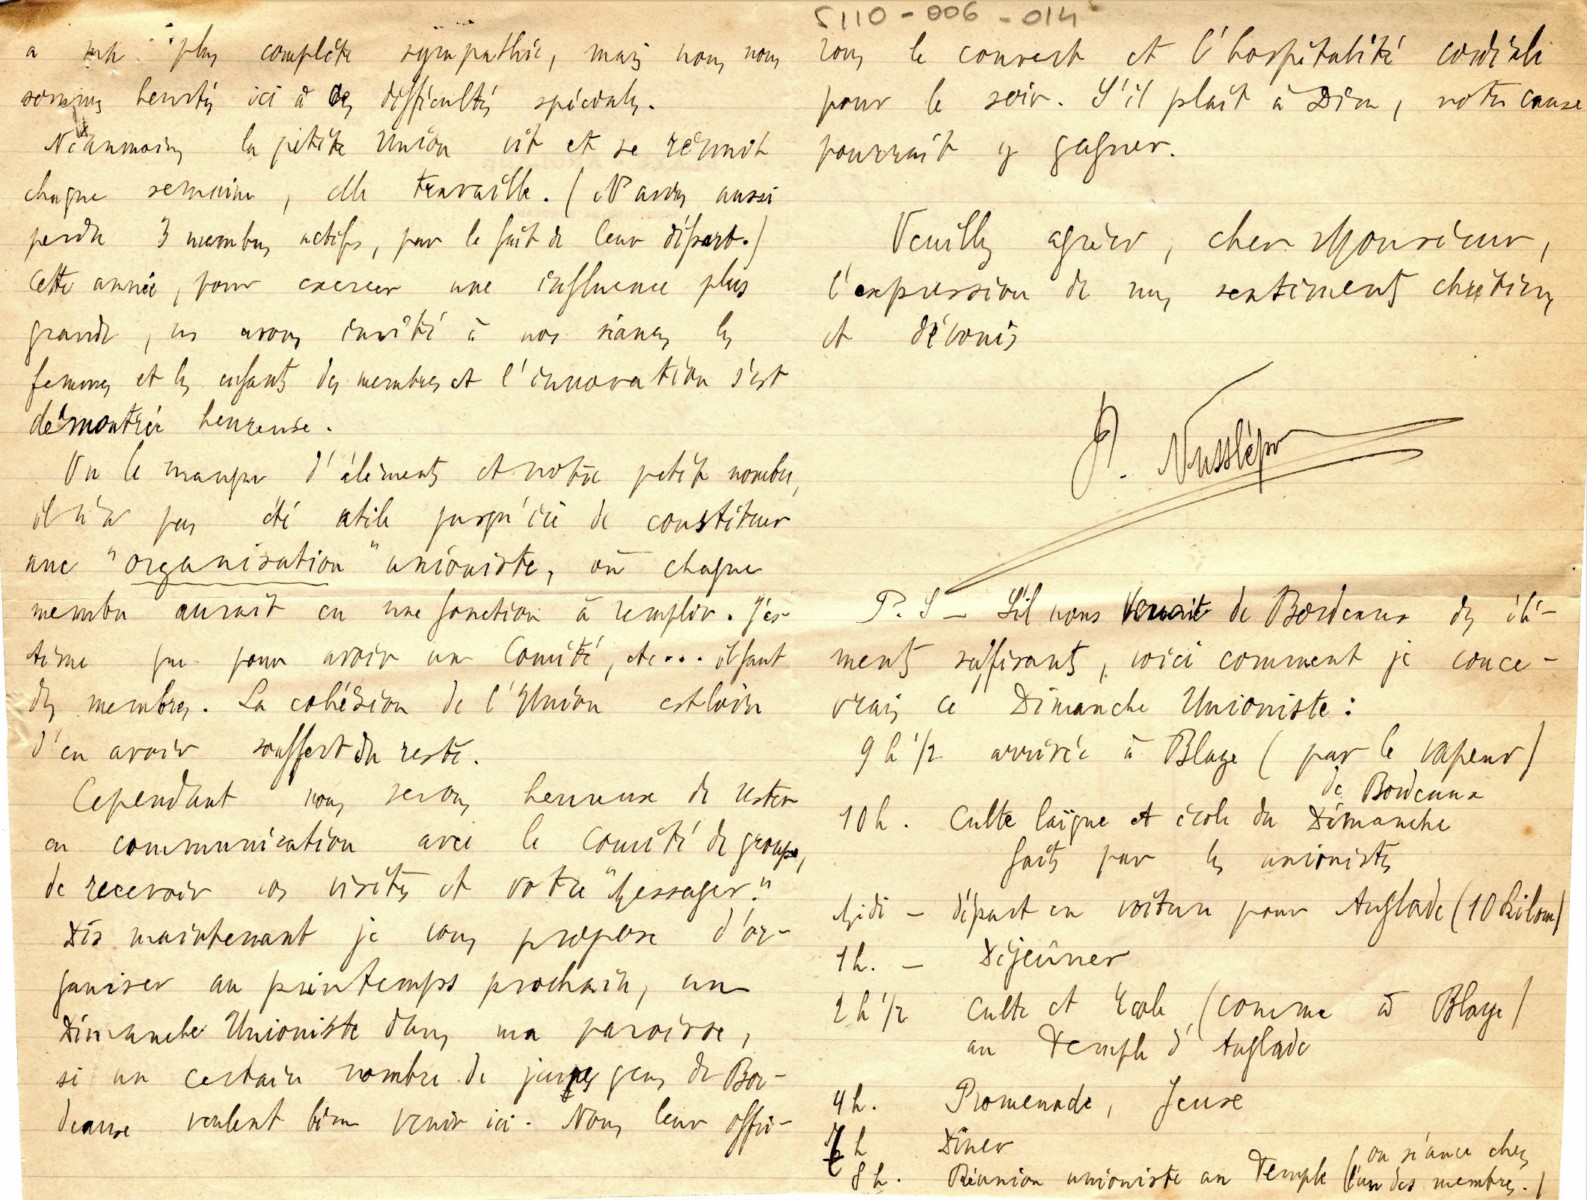 5110-006-014
a ma plus complète sympathie, mais nous nous
sommes heurtés ici à des difficultés spéciales.
Néanmoins la petite Union vit et se réunit
chaque semaine, elle travaille. (N avons aussi
perdu 3 membres actifs, par le fait de leur départ.)
Cette année, pour exercer une influence plus
grande, ns avons invité à nos séances les
femmes et les enfants des membres et l'innovation s'est
démontrée heureuse.
Vu le manque d'éléments et notre petit nombre,
il n'a pas été utile jusqu'ici de constituer
une "organisation" unioniste, où chaque
membre aurait eu une fonction à remplir. J'es-
time que pour avoir un Comité, etc... il faut
des membres. La cohésion de l'Union est loin
d'en avoir souffert du reste.
Cependant nous serons heureux de rester
en communication avec le Comité de groupe,
de recevoir vos visites et votre "Messager."
Dès maintenant je vous propose d'or-
ganiser au printemps prochain, un
Dimanche Unioniste dans ma paroisse,
si un certain nombre de jeunes gens de Bor-
deaux veulent bien venir ici. Nous leur offri-
rons le couvert et l'hospitalité cordiale
pour le soir. S'il plaît à Dieu, notre cause
pourrait y gagner.
Veuillez agréer, cher Monsieur,
l'expression de mes sentiments chrétiens
et dévoués
P. S — S'il nous venait de Bordeaux des élé-
ments suffisants, voici comment je conce-
vrais ce Dimanche Unioniste :
9 h 1/2 arrivée à Blaye (par le vapeur)
de Bordeaux
10 h. Culte laïque et école du Dimanche
faits par les unionistes
Midi — départ en voiture pour Anglade (10 kilom)
1 h. — Déjeûner
2 h 1/2 Culte et école (comme à Blaye)
au Temple d'Anglade
4 h. Promenade, Jeux
h Dîner
8 h. Réunion unioniste au Temple (ou séance chez
l'un des membres.)